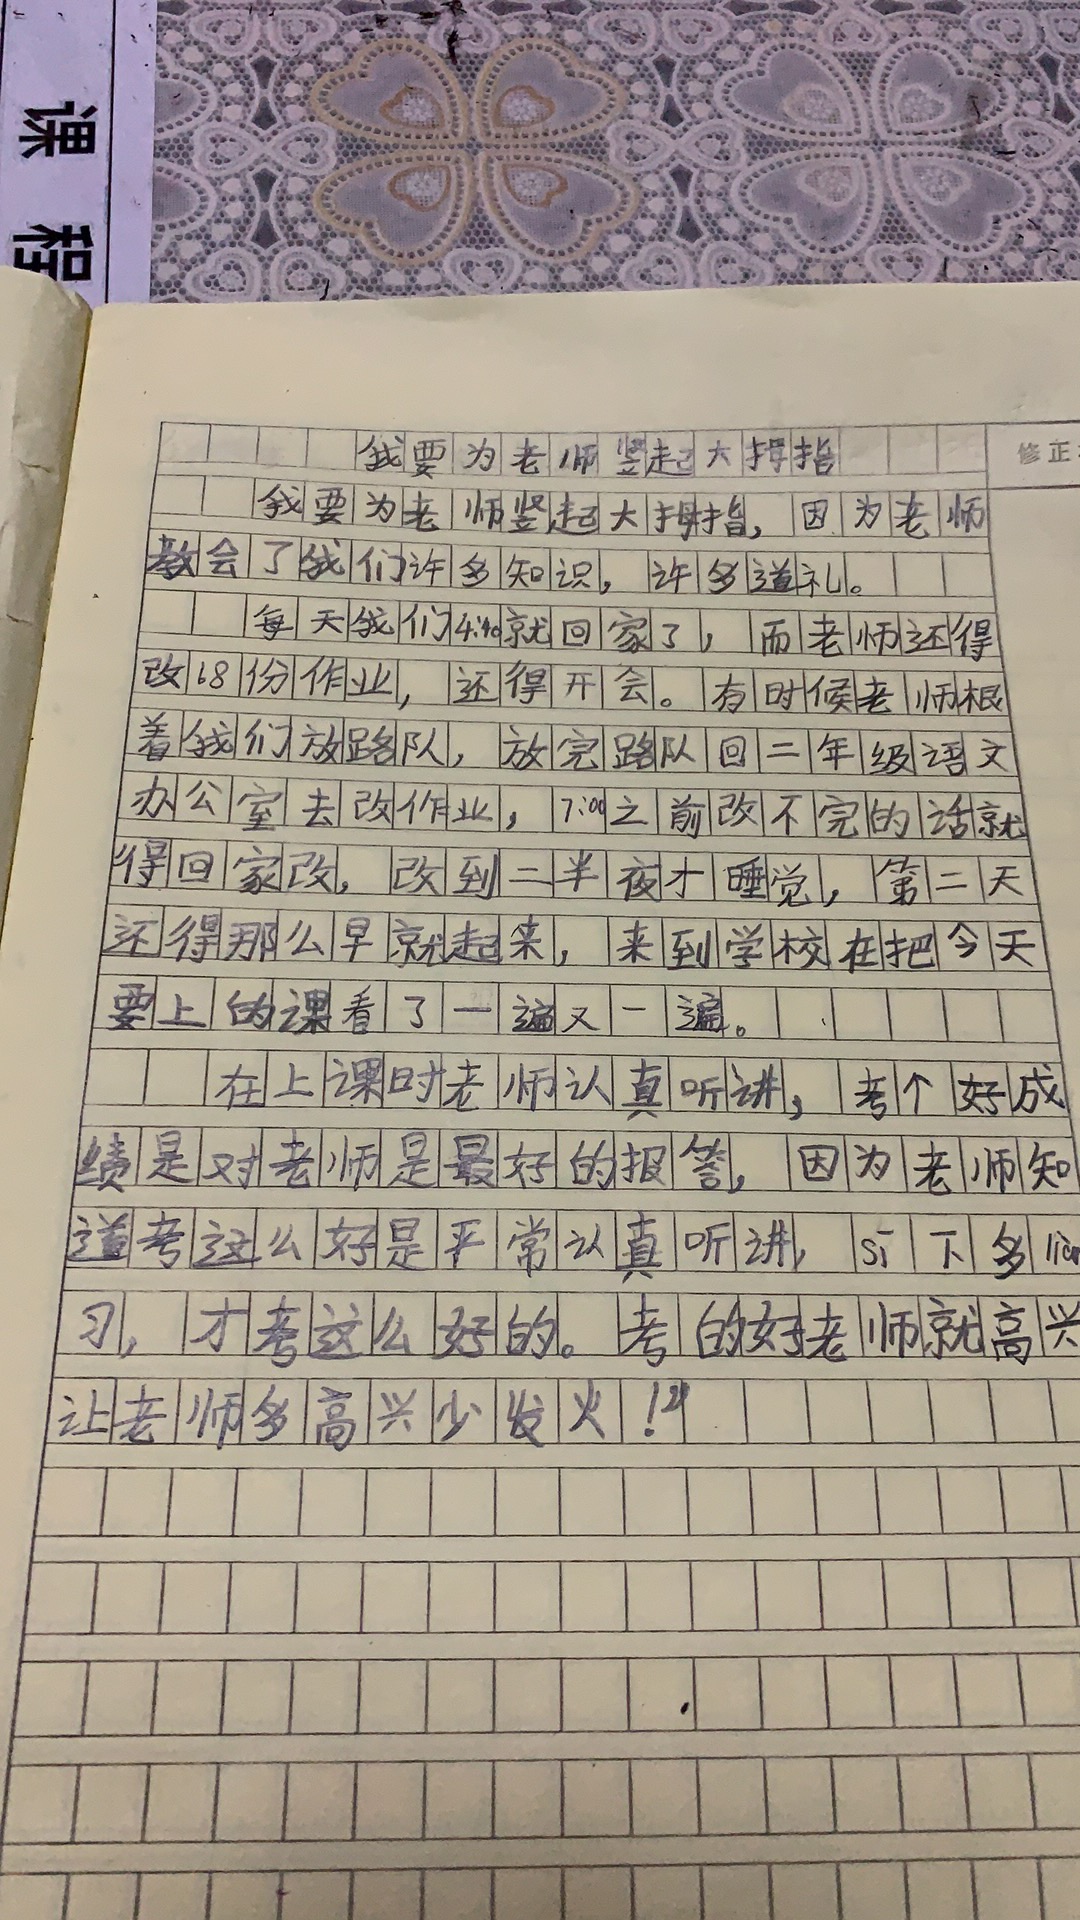 课程
修正
我要为老师竖起大拇指
我要为老师竖起大拇指，因为老师
教会了我们许多知识，许多道礼。
每天我们4:40就回家了，而老师还得
改68份作业，还得开会。有时候老师根
着我们放路队，放完路队回二年级语文
办公室去改作业，7:00之前改不完的话就
得回家改，改到二半夜才睡觉，第二天
还得那么早就起来，来到学校在把今天
要上的课看了一遍又一遍。
在上课时老师认真听讲，考个好成
绩是对老师是最好的报答，因为老师知
道考这么好是平常认真听讲，sī下多
习，才考这么好的。考的好老师就高兴
让老师多高兴少发火！"